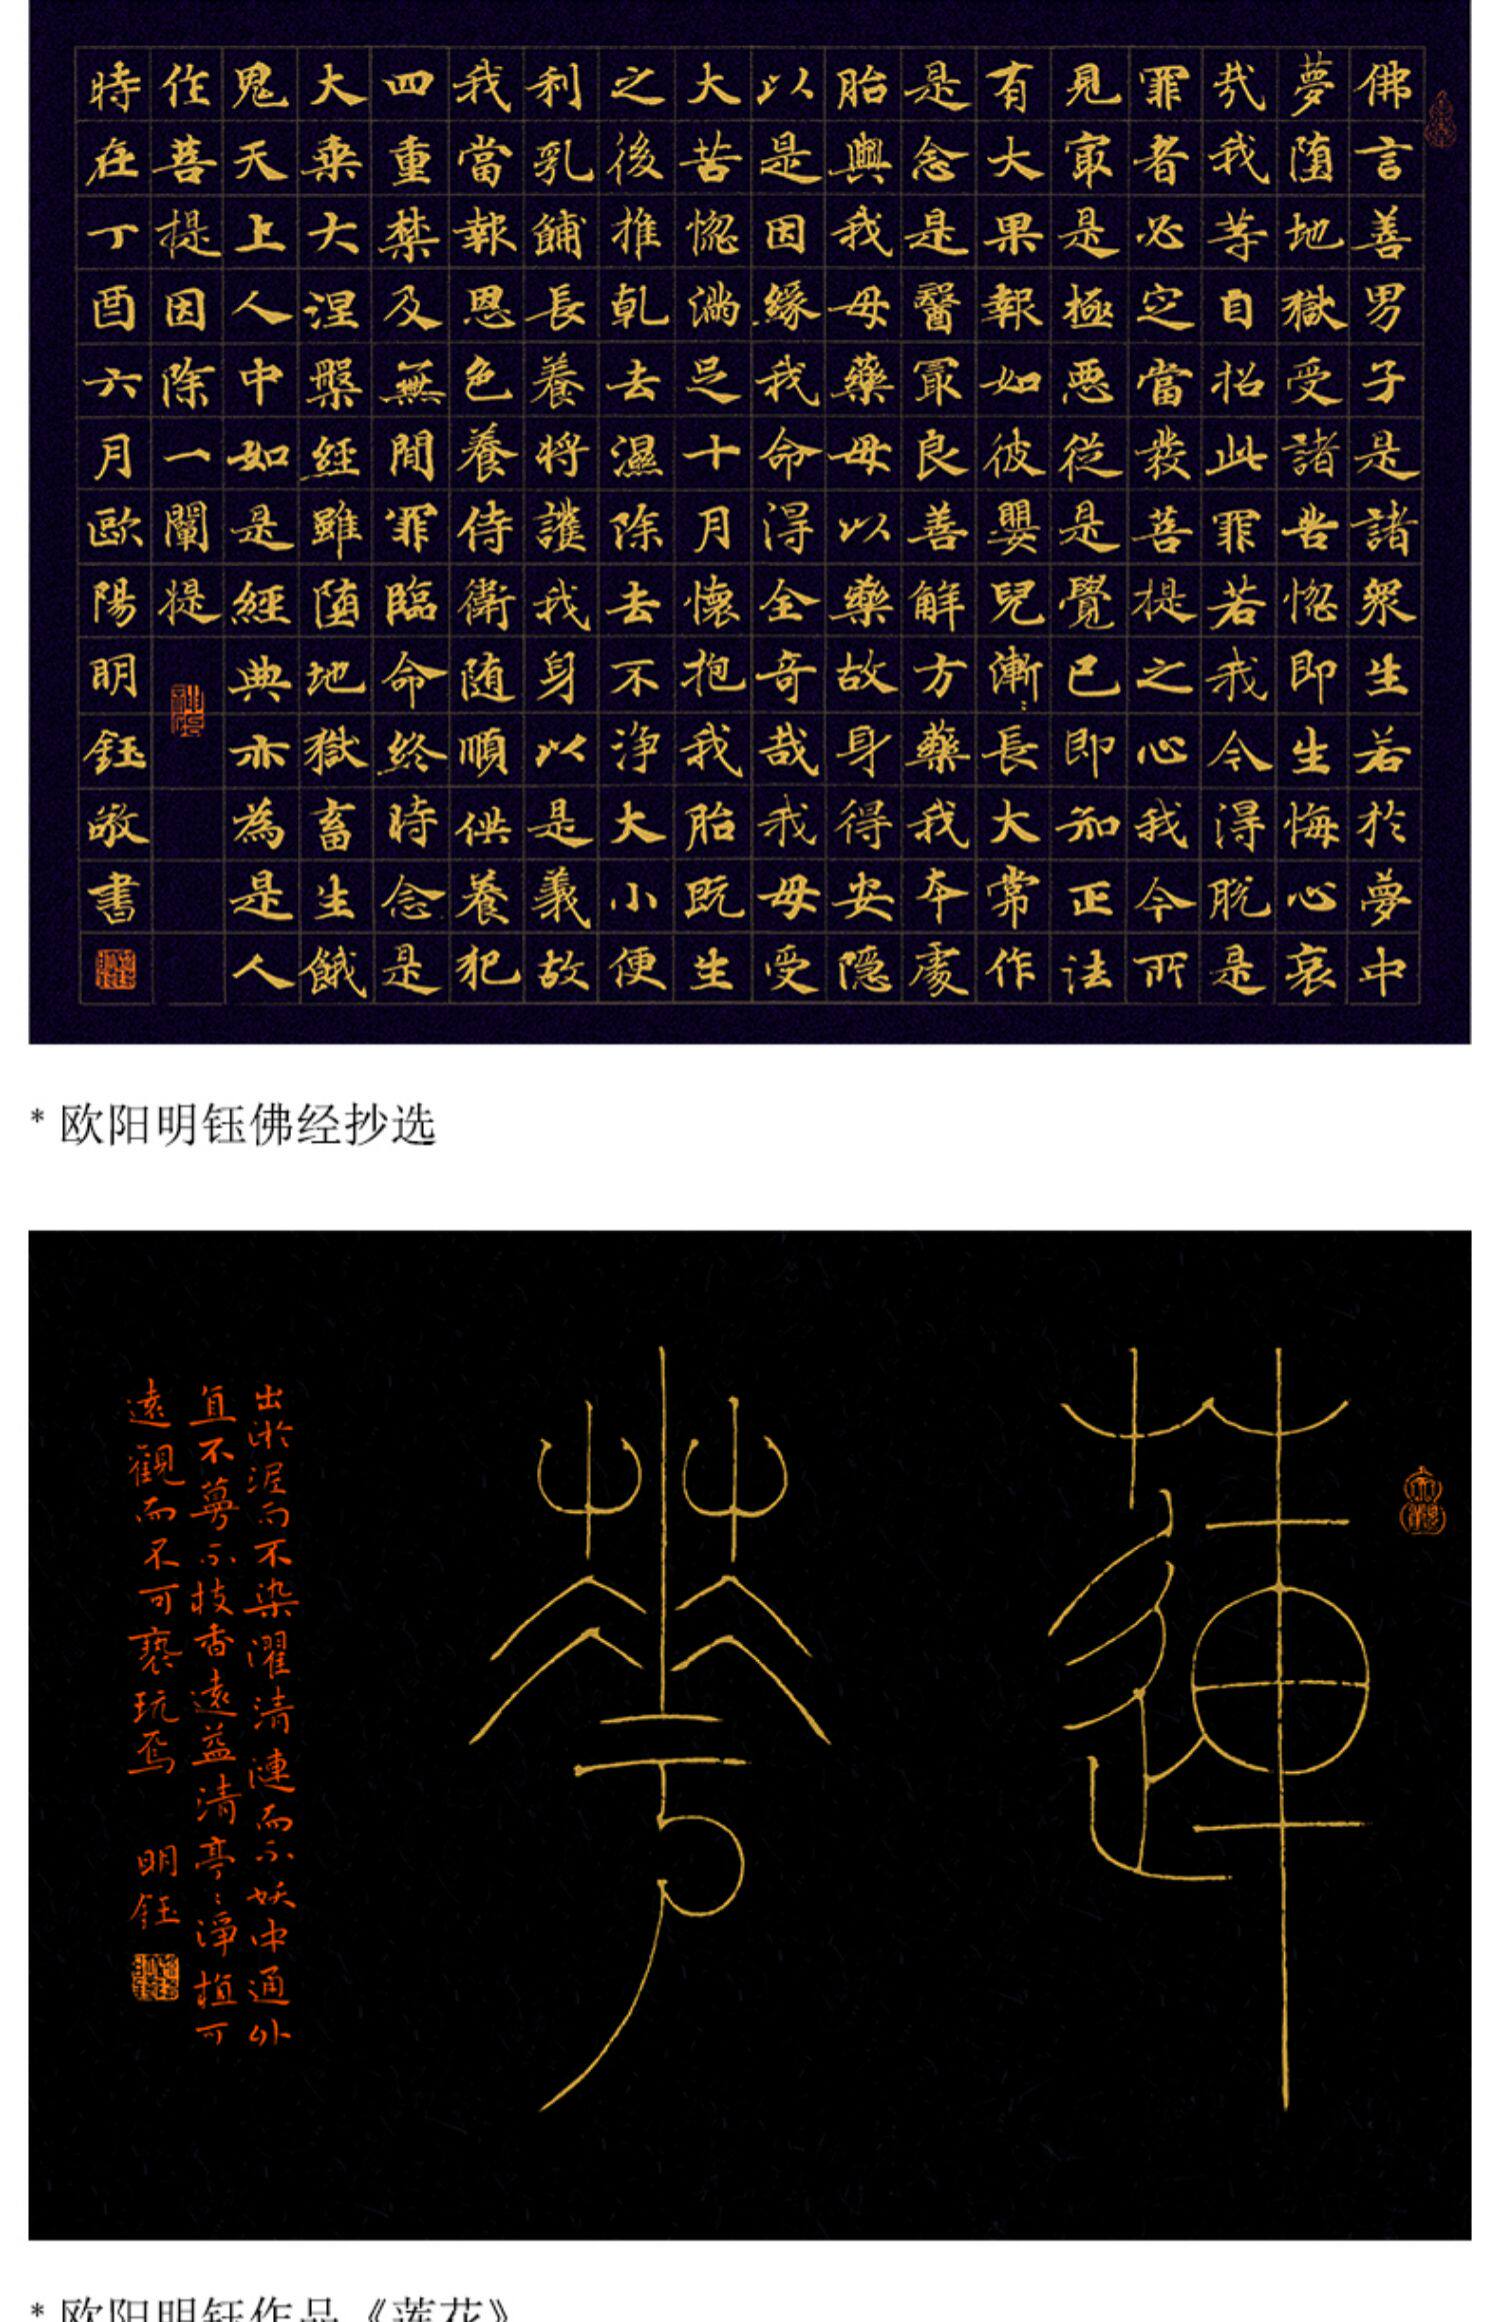 佛言善男子是諸衆生若於夢中
夢墮地獄受諸苦惱即生悔心哀
哉我等自招此罪若我今得脫是
罪者必定當發菩提之心我今所
見冣是極惡從是覺已即知正法
有大果報如彼嬰兒漸〻長大常作
是念是醫冣良善解方藥我本處
胎與我母藥母以藥故身得安隱
以是因緣我命得全奇哉我母受
大苦惱滿足十月懷抱我胎既生
之後推乾去濕除去不淨大小便
利乳餔長養將護我身以是義故
我當報恩色養侍衛随順供養犯
四重禁及無閒罪臨命終時念是
大乗大涅槃經雖墮地獄畜生餓
鬼天上人中如是經典亦為是人
作菩提因除一闡提
時在丁酉六月歐陽明鈺敬書
* 欧阳明钰佛经抄选
蓮華
出淤泥而不染濯清漣而不妖中通外
直不蔓不枝香遠益清亭〻淨植可
遠觀而不可褻玩焉 明鈺
* 欧阳明钰作品《莲花》